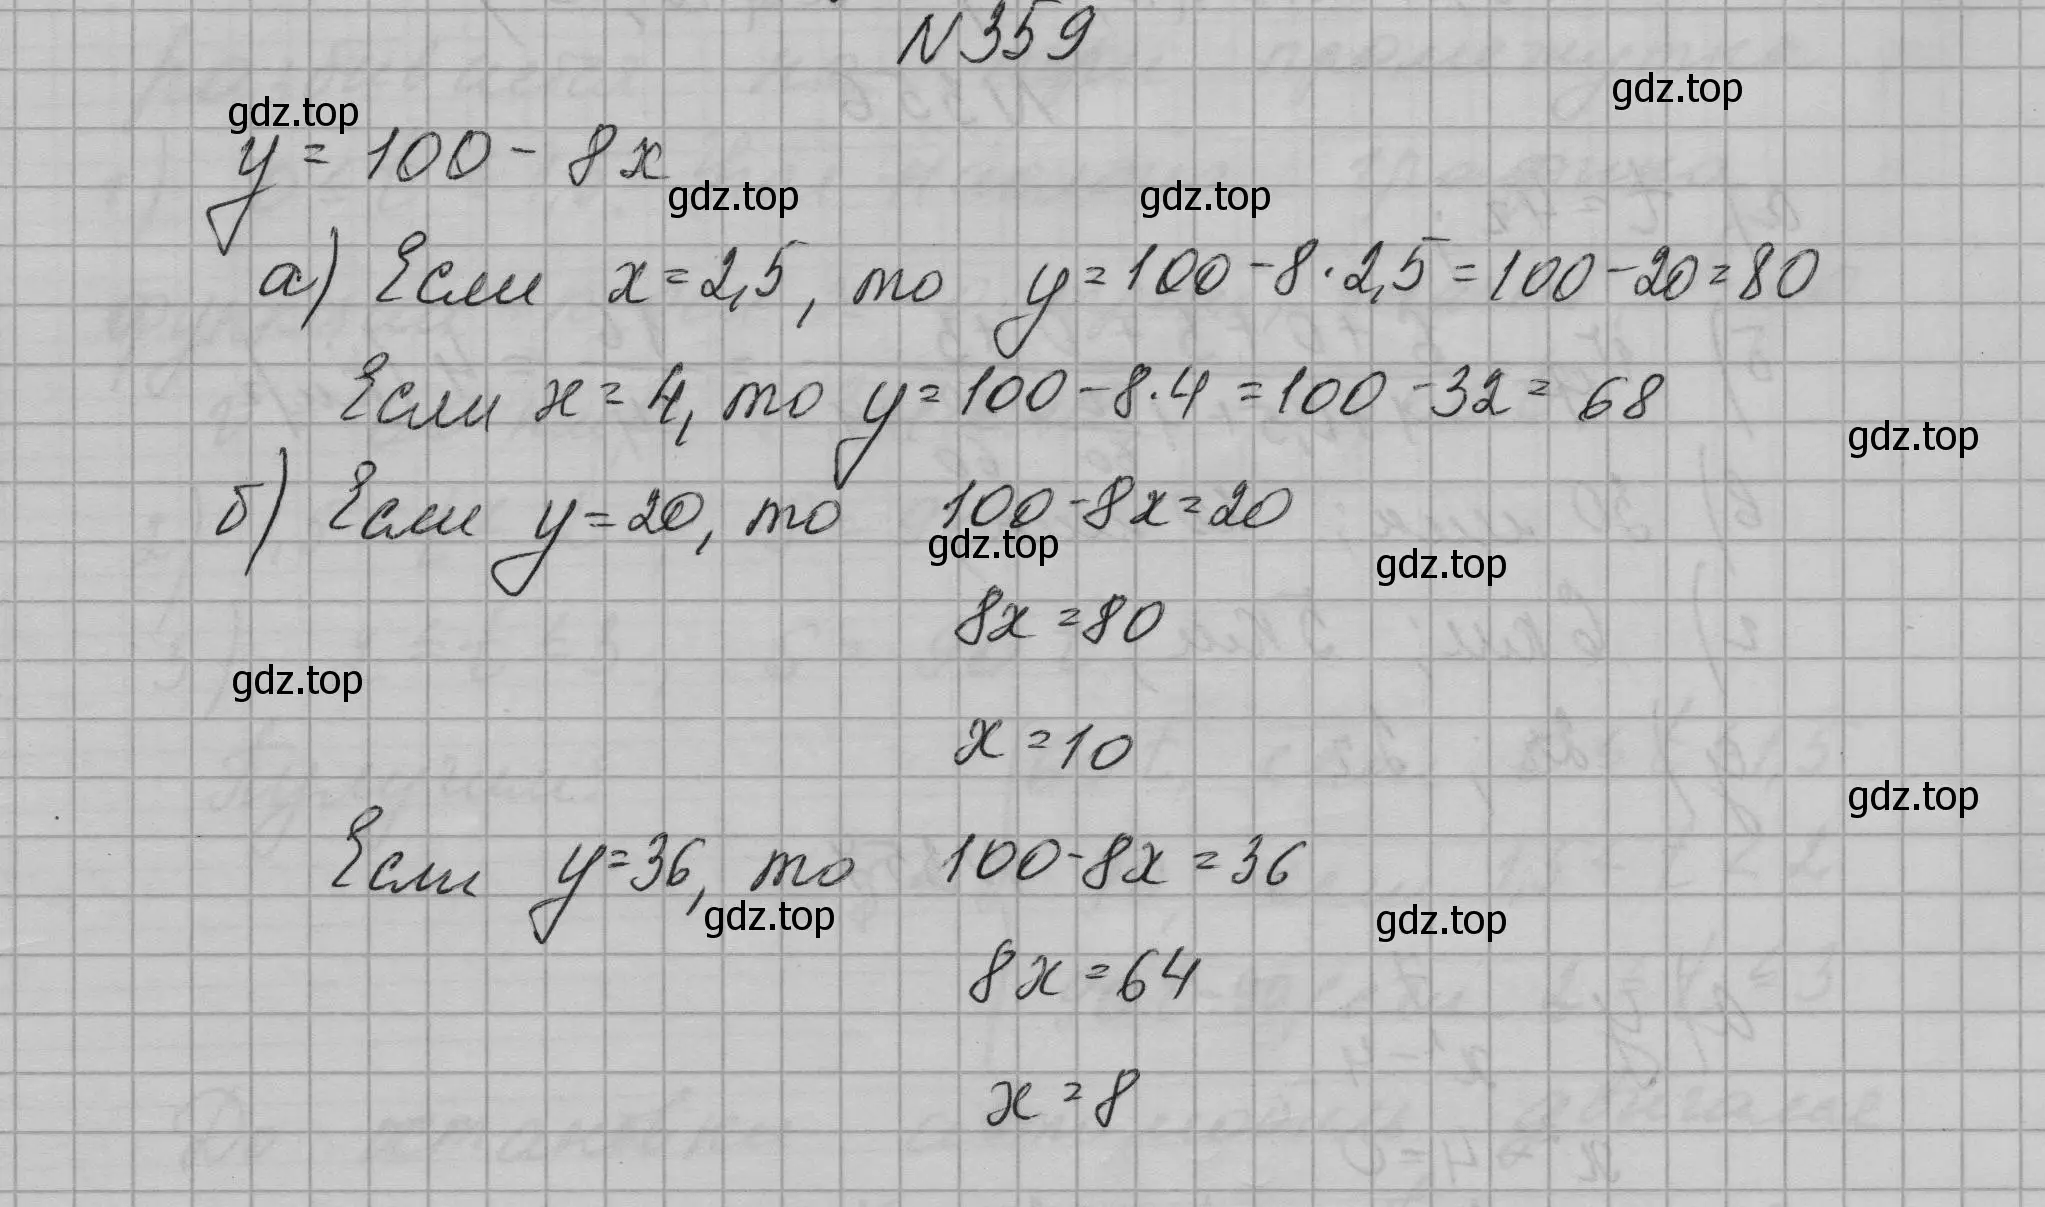 N 359
gdz.top
gdz.top
y = 100 - 8x
gdz.top
gdz.top
а) Если x = 2,5, то y = 100 - 8 · 2,5 = 100 - 20 = 80
Если x = 4, то y = 100 - 8 · 4 = 100 - 32 = 68
gdz.top
б) Если y = 20, то 100 - 8x = 20
gdz.top
gdz.top
8x = 80
gdz.top
x = 10
gdz.top
Если y = 36, то 100 - 8x = 36
gdz.top
gdz.top
8x = 64
x = 8